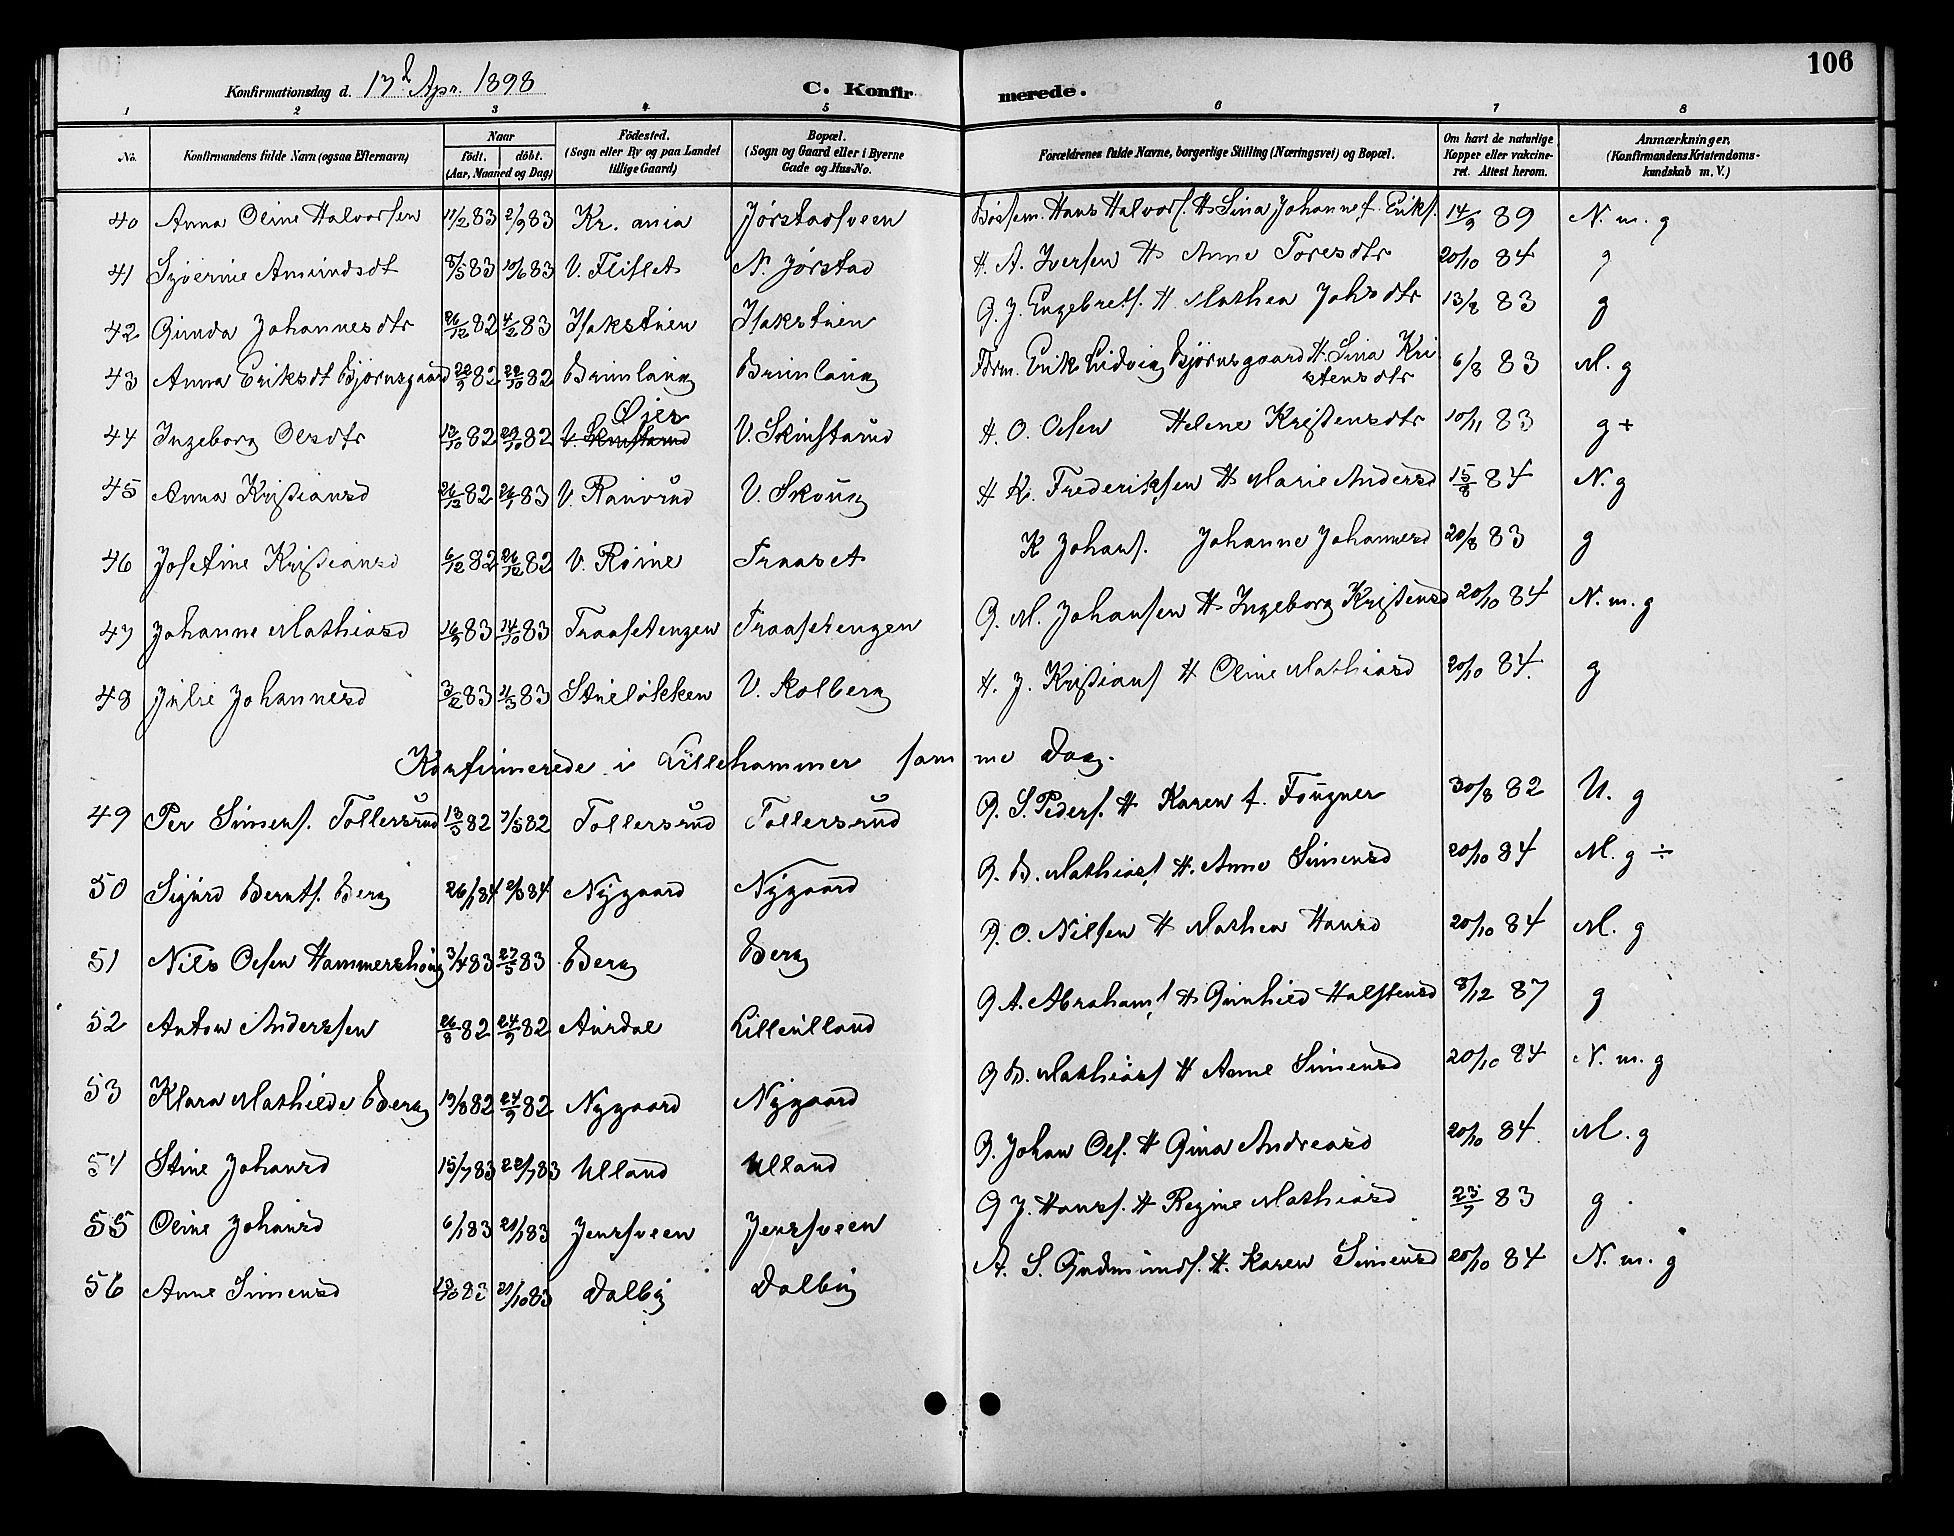 106
Konfirmationsdag d. 17d Apr. 1898 C. Konfirmerede.
1 2 3 4 5 6 7 8
No. Konfirmandens fulde Navn (ogsaa Efternavn) Naar födt. döbt. (Aar, Maaned og Dag) Födested. (Sogn eller By og paa Landet tillige Gaard) Bopæl. (Sogn og Gaard eller i Byerne Gade og Hus-No. Forældrenes fulde Navne, borgerlige Stilling (Næringsvei) og Bopæl. Om havt de naturlige Kopper eller vakcineret. Attest herom. Anmærkninger, (Konfirmandens Kristendomskundskab m. V.)
40 Anna Oline Halvorsen 11/2 83 2/9 83 Kr. ania Jørstadsveen Hans Halvors. H Lina Johanne f. Eriks. 14/9 89 N. m. g
41 Amundsdt 8/5 83 10/6 83 V. Fliflet N. Jørstad H. A. Iversen H Anne Toresdtr 20/10 84 g
42 Gunda Johannesdtr 26/12 82 4/2 83 Isakstuen Isakstuen G. J. Engebrets. H Mathea Johsdtr 13/8 83 g
43 Anna Eriksdt Bjørnsgaard 22/9 82 22/10 82 Brunlaug Brunlaug Form. Erik Ludvig Bjørnsgaard H. Lina Kristensdtr 6/8 83 M. g
44 Ingeborg Olsdtr 12/10 82 29/10 82 V. Skinstarud Øier V. Skinstarud H. O. Olsen Helene Kristensdtr 10/11 83 g +
45 Anna Kristiansd 26/12 82 26/1 83 V. Ranvrud V. Skoug H K. Frederiksen H Marie Andersd 15/8 84 N. g
46 Josefine Kristiansd 6/12 82 26/12 82 V. Røine Traaset K Johans. Johanne Johannesd 20/8 83 g
47 Johanne Mathiasd 16/9 83 14/10 83 Traasetengen Traasetengen G. M. Johansen H Ingeborg Kristensd 20/10 84 N. m. g
48 Julie Johannesd 3/2 83 4/3 83 Stueløkken V. Kolberg H. J. Kristians H Oline Mathiasd 20/10 84. g
Konfirmerede i Lillehammer samme Dag.
49 Per Simens. Tollersrud 13/3 82 7/5 82 Tollersrud Tollersrud G. S. Peders. H Karen f. Fougner 30/8 82 U. g
50 Sigurd Bernts. Berg 26/1 84 2/3 84 Nygaard Nygaard G. B. Mathias H. Anne Simensd 20/10 84 M. g ÷
51 Nils Olsen Hammershaug 3/4 83 27/5 83 Berg Berg G. O. Nilsen H Mathea Hansd 20/10 84 M. g
52 Anton Anderssen 26/8 82 24/9 82 Aurdal Lilleulland G A. Abrahams H Gunhild Halstensd 8/12 87 g
53 Klara Mathilde Berg 19/8 82 24/9 82 Nygaard Nygaard G B. Mathias H Anne Simensd 20/10 84 N. m. g
54 Stine Johansd 15/7 83 22/7 83 Ulland Ulland G. Johan Ols. H Gina Andreasd 20/10 84. M. g
55 Oline Johansd 6/1 83 21/1 83 Jensveen Jensveen G J. Hans. H Regine Mathiasd 23/7 83 g.
56 Anne Simensd 83 21/10 83 Dalby Dalby A. S. Gudmunds. H. Karen Simensd 20/10 84 N. m. g